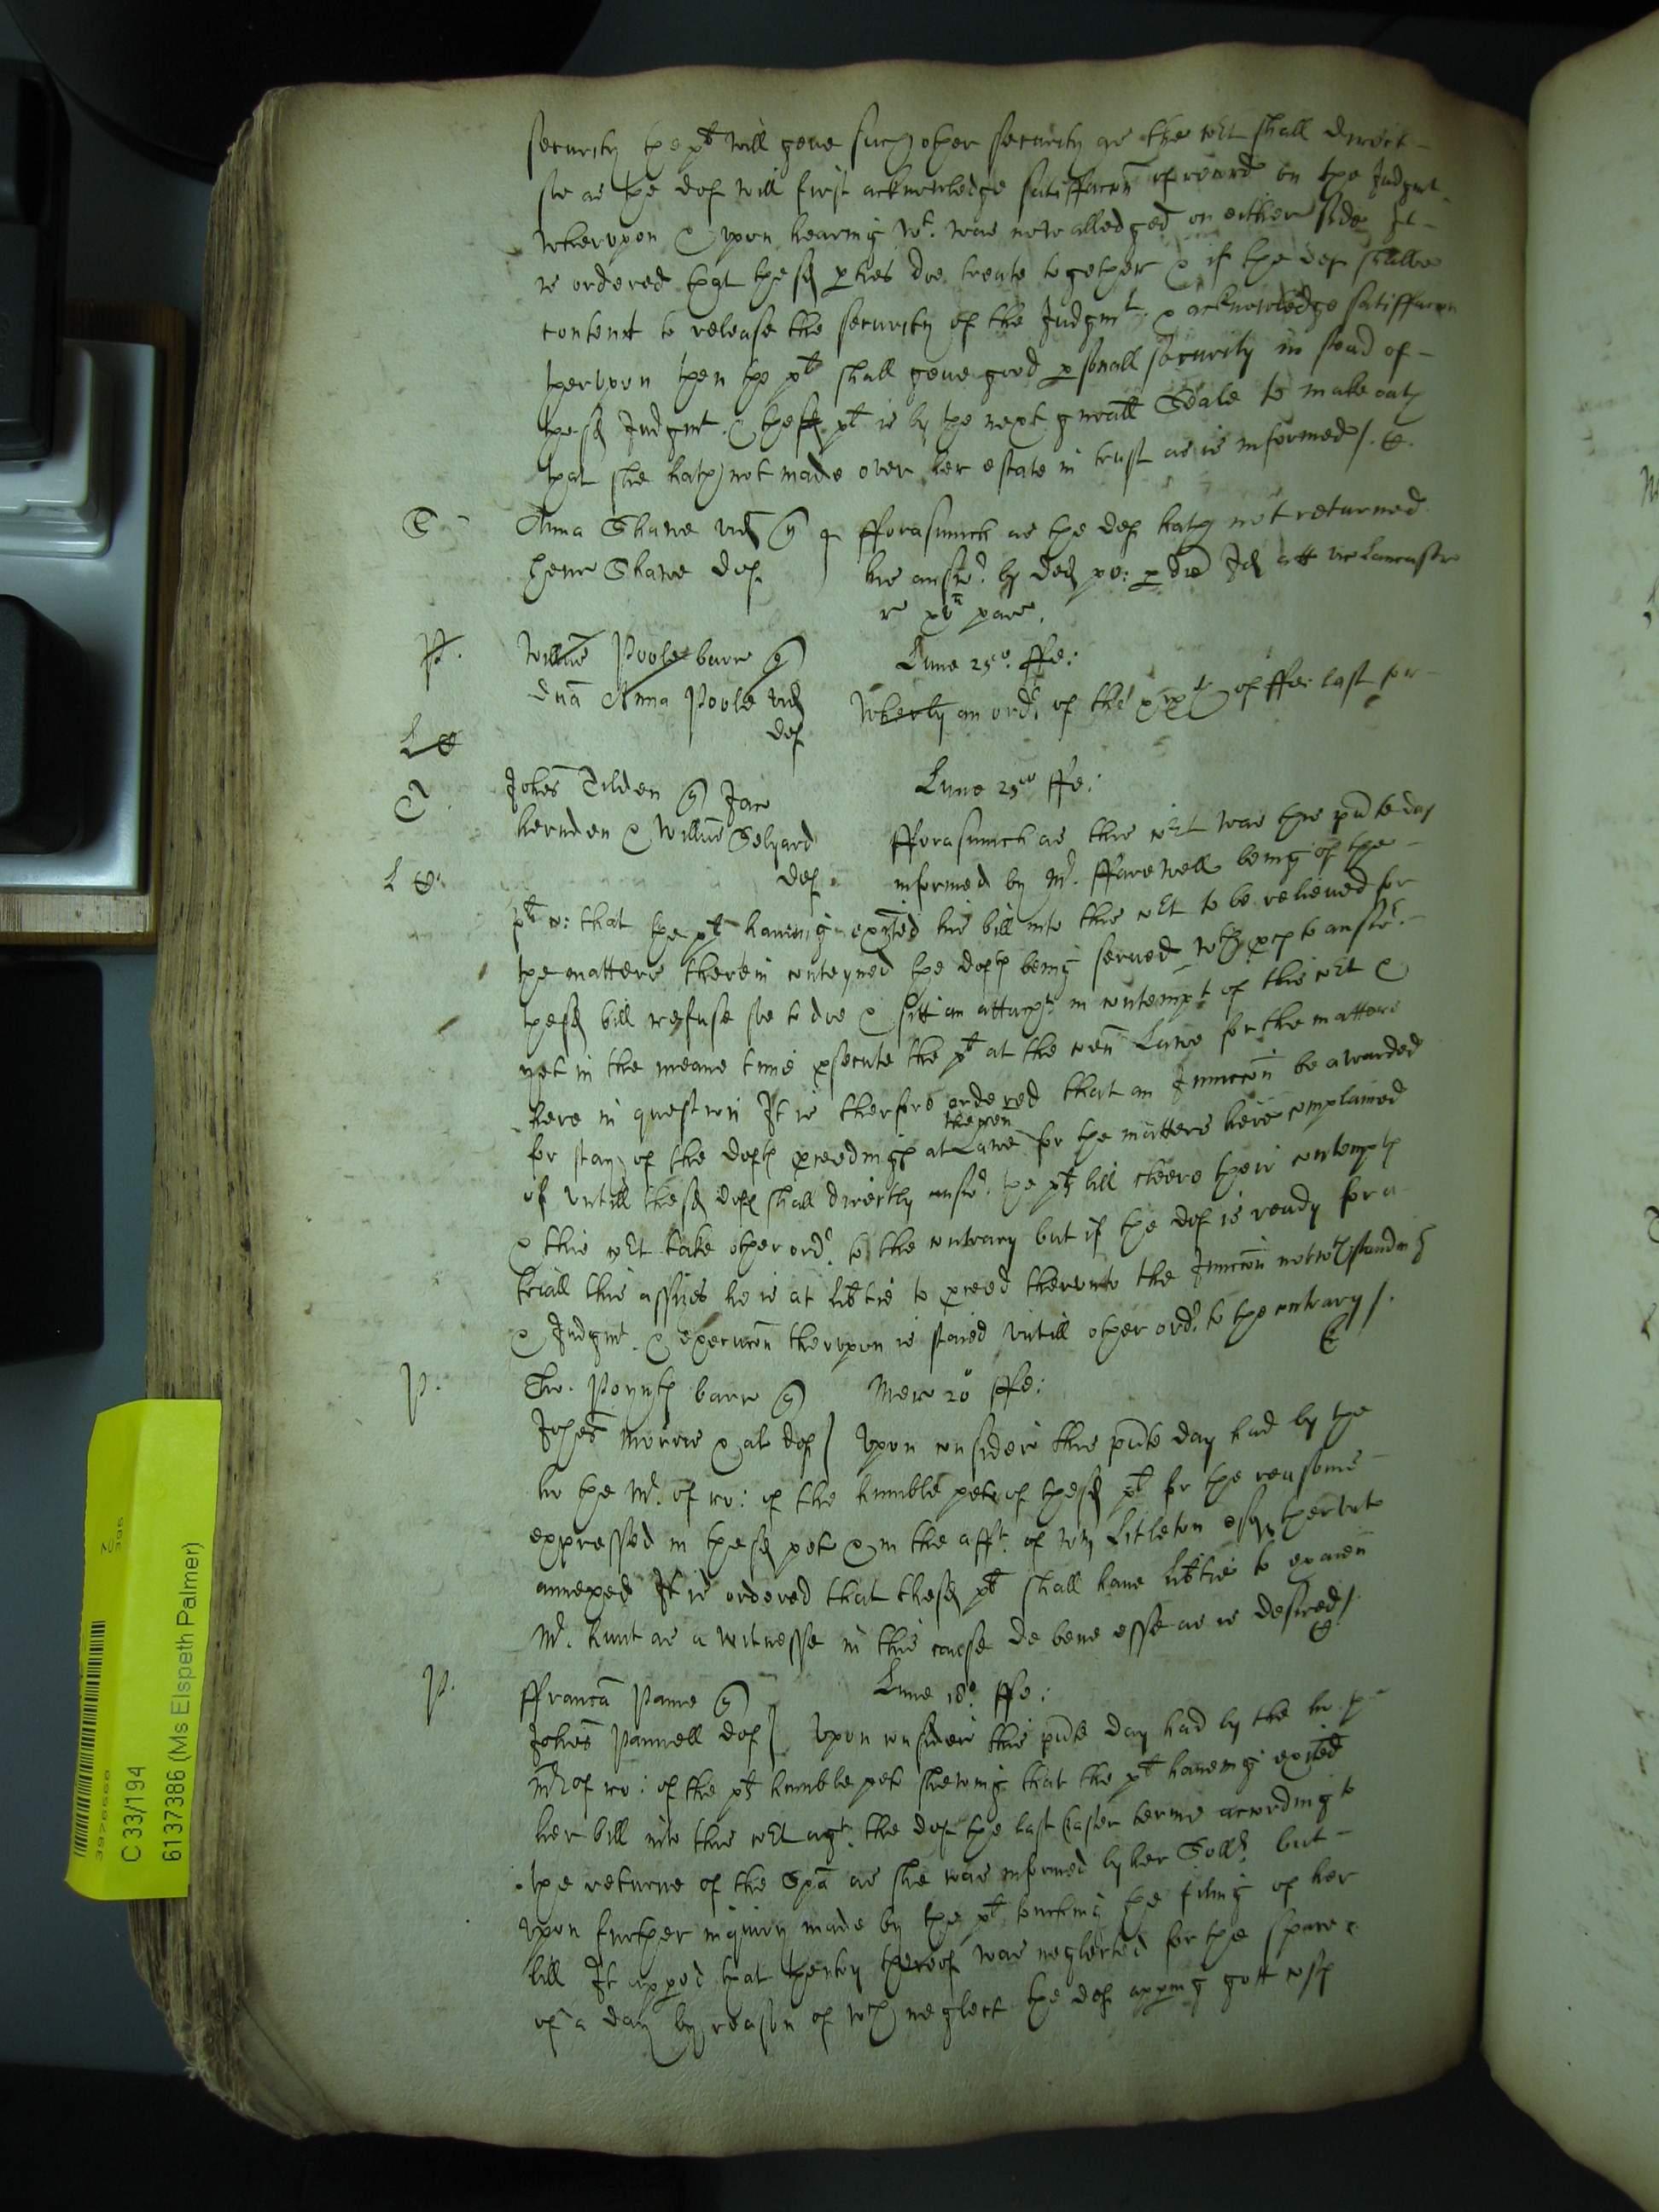 security the plt will geve such other security as the Court shall direct
soe as the def will first acknowledge satisffaccon of record on the Judgmt
Wherupon & upon hearing wt. was now alledged on either side It
is ordered that the sd pties doe treate together & if the def shalbe
content to release the security of the Judgmt. & acknowledge satisffaccon
therupon then the plt shall geve good psonall security in stead of
the sd Judgmt. & the sd plt is by the next gnrall Seale to make oath
that she hath not made over her estate in trust as is informed /. E.
S Anna Shawe vid q fforasmuch as the def hath not returned
Henr Shawe def his answr. by ded po: p dco Id att vic Lancastr
r xva pasc.
P. Willms Poole barr q Lune 25o. ffe:
dna Anna Poole vid Wherby an ordr of the of ffe: last for
def
L
T Johes Tilden q Jaco Lune 25to ffe:
hernden & Willms Selyard fforasmuch as this Court was this pnte day
L def informed by Mr. ffarewell being of the
plt co: that the plt haveing exhited his bill into this Court to be releived for
the matters therein conteyned the defts being served wth pces to answr.
the sd bill refuse soe to doe & sitt an attachmt in contempt of this Court &
yet in the meane time psecute the plt at the coen Lawe for the matters
here in question It is therfore ordered that an Iniuccon be awarded
the coen
for stay of the defts pceedings at Lawe for the matters here complained
of untill the sd defts shall directly answr. the plts bill cleere their contempts
& this Court take other ordr. to the contrary but if the def is ready for a
triall this assizes he is at libtie to pceed therunto the Iniuccon notwthstanding
& Judgmt. & execucon therupon is staied untill other ordr. to the contrary /.
E
P. Tho. Poyntz barr q Merc 20 ffe:
Johes Morris & al def Upon consideracn this pnte day had by the
ho the Mr. of ro: of the humble petn of the sd plt for the reasons
expressed in the sd petn & in the afft. of Wm Litleton esqr therunto
annexed It is ordered that the sd plt shall have libtie to examn
Mr. Hunt as a witnesse in this cause de bene esse as is desired /.
E
P. ffranca Paine q Lune 18o. ffe:
Johes Pannell def Upon consideracn this pnte day had by the ho. the
Mr of ro: of the plts humble petn shewing that the plt haveing exited
her bill into this Court agt. the def the last Easter terme according to
the returne of the Spa as she was informed by her Sollr. but
upon further inquiry made by the plt touching the filing of her
bill It apped that the entry therof was neglected for the space
of a day by reason of wch neglect the def apping gott costs
C 33/194
6137386 (Ms Elspeth Palmer)